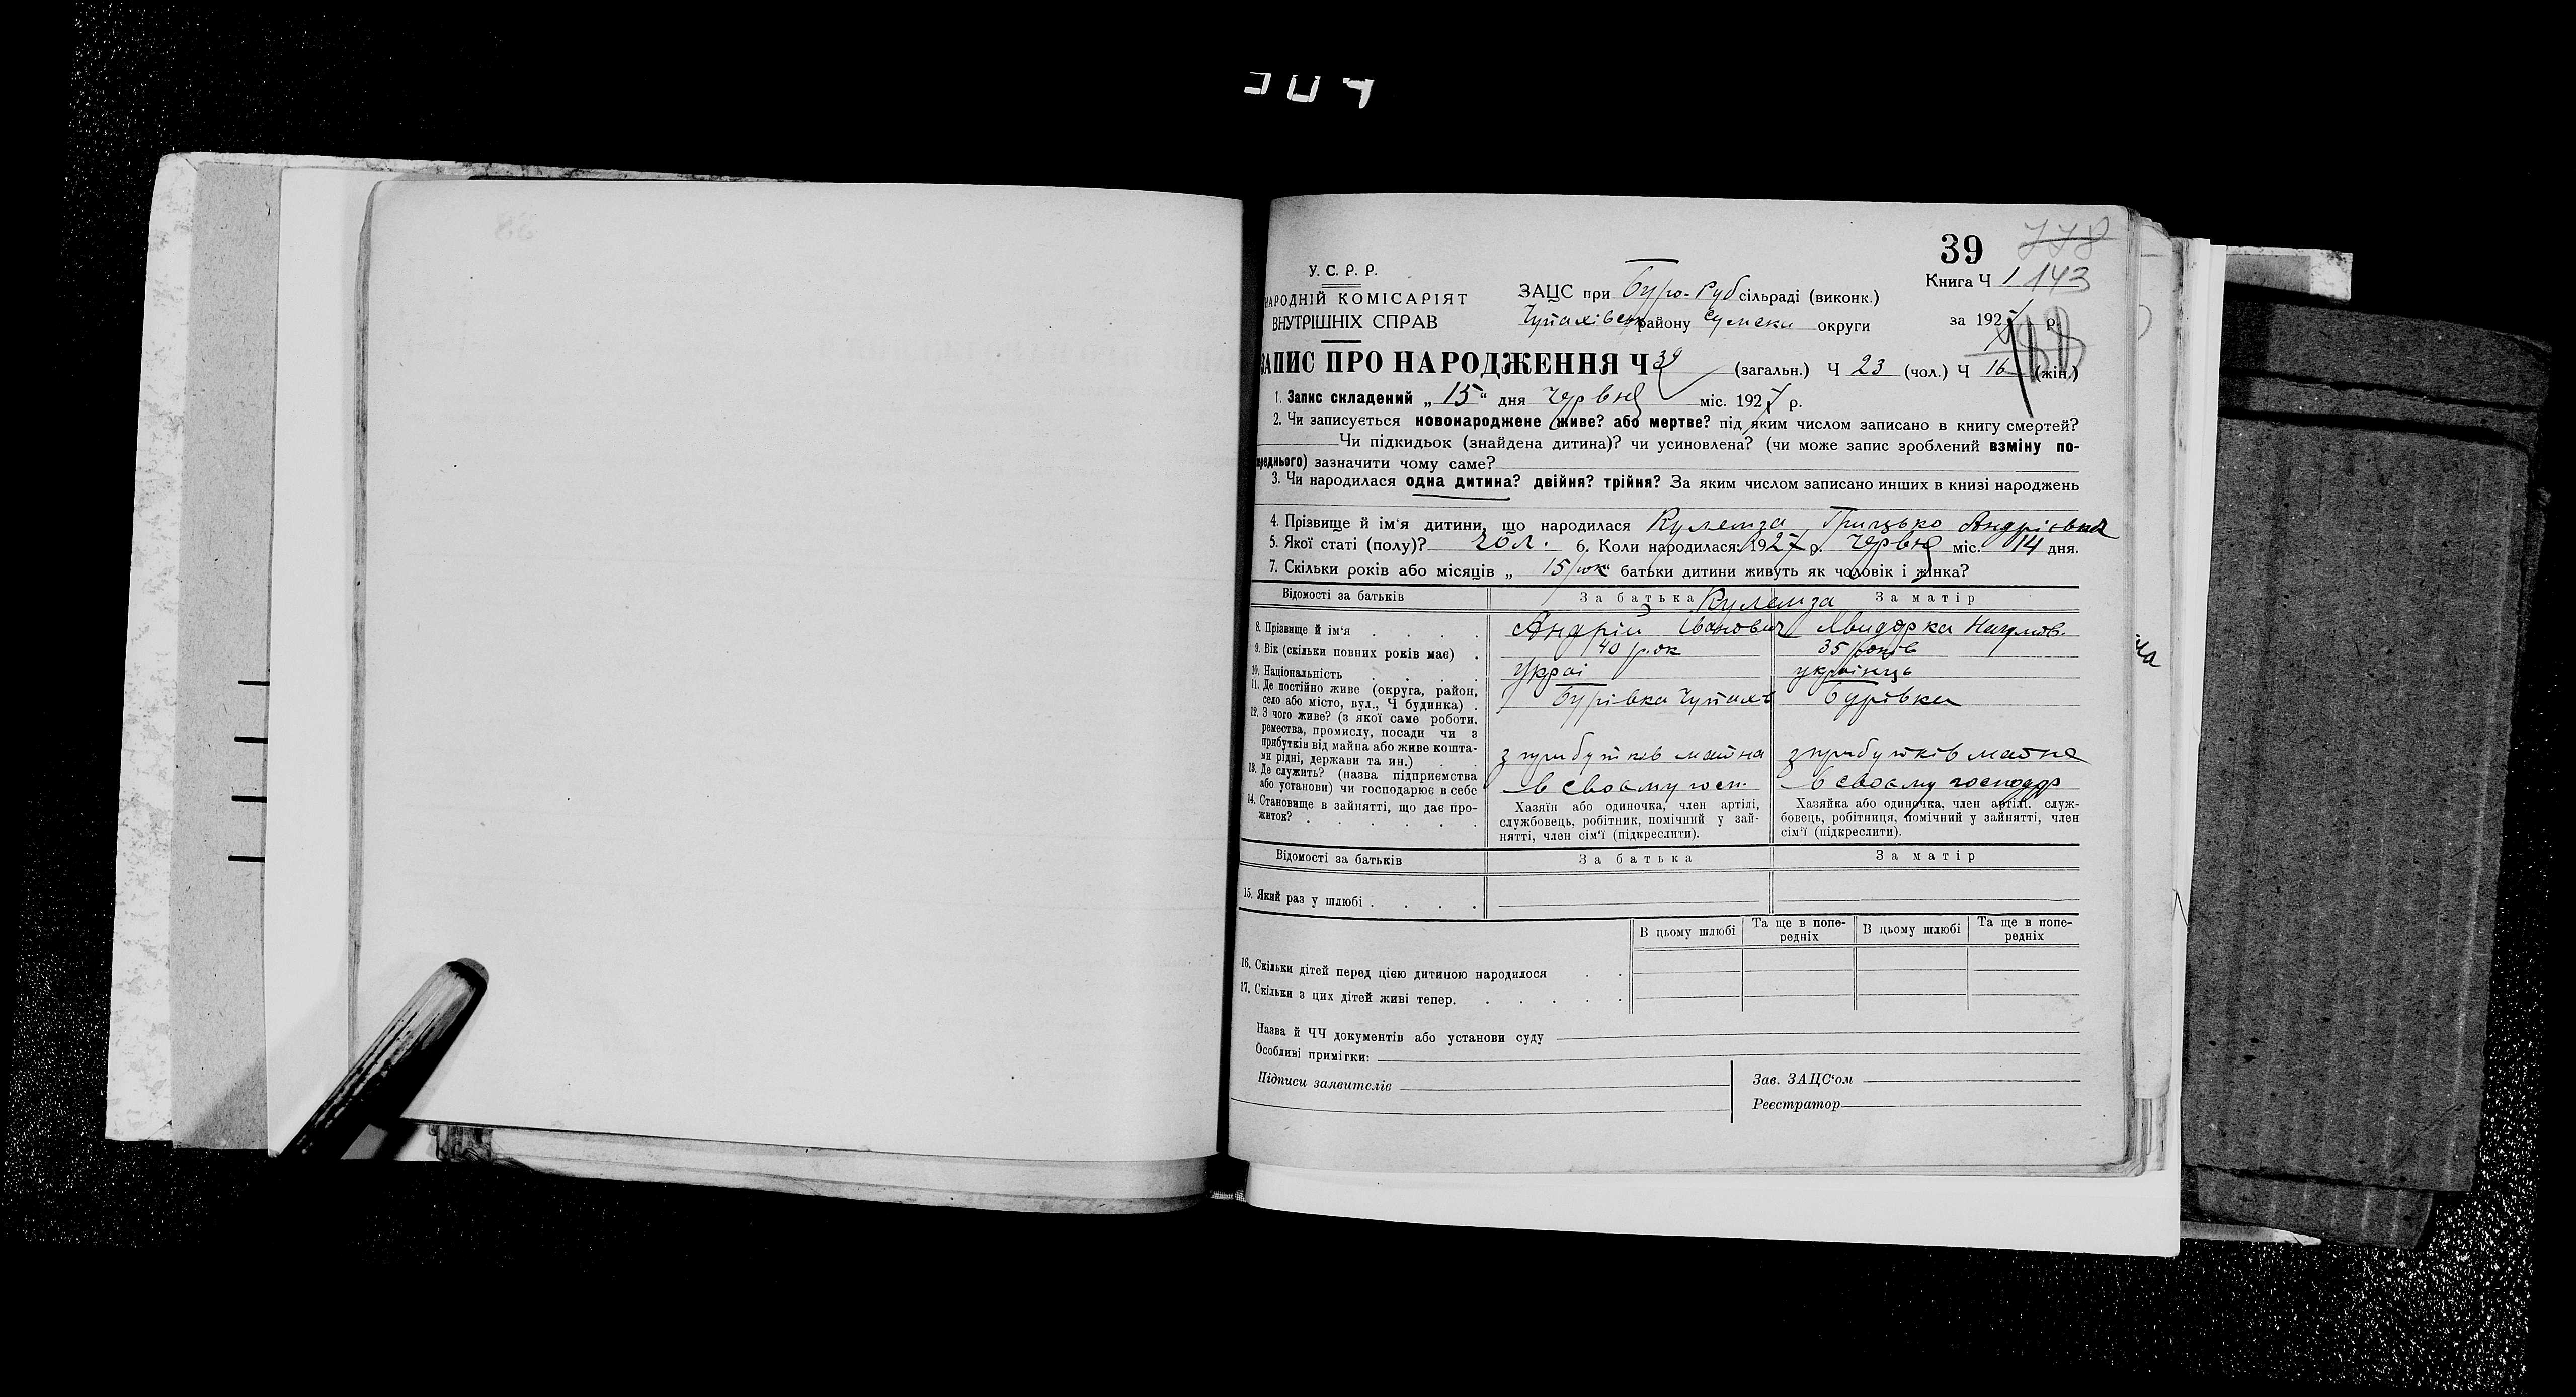 39
У. С. Р. Р.
НАРОДНІЙ КОМІСАРІЯТ
ВНУТРІШНІХ СПРАВ
ЗАЦС при Буро-Руб сільраді (виконк.)
Чупахівськ району Сумськ округи
Книга Ч 1 143
за 1927 р.
ЗАПИС ПРО НАРОДЖЕННЯ Ч 39 (загальн.) Ч 23 (чол.) Ч 16 (жін.)
1. Запис складений „ 15 " дня червня міс. 1927 р.
2. Чи записується новонароджене живе? або мертве? під яким числом записано в книгу смертей?
Чи підкидьок (знайдена дитина)? чи усиновлена? (чи може запис зроблений взміну по-
переднього) зазначити чому саме?
3. Чи народилася одна дитина? двійня? трійня? За яким числом записано инших в книзі народжень
4. Прізвище й ім'я дитини, що народилася Кулемза Грицько Андрієвич
5. Якої статі (полу)? чол. 6. Коли народилася: 1927 р. червня міс. 14 дня.
7. Скільки років або місяців „ 15 рок " батьки дитини живуть як чоловік і жінка?
Відомості за батьків За батька Кулемза За матір
8. Прізвище й ім'я . . . . Андрій Іванович Явидорка Наумов.
9. Вік (скільки повних років має) . 40 рок 35 років
10. Національність украі українць
11. Де постійно живе (округа, район,
село або місто, вул., Ч будинка) . Бурівка Чупахів Бурівка
12. З чого живе? (з якої саме роботи,
ремества, промислу, посади чи з
прибутків від майна або живе кошта-
ми рідні, держави та ин.) з прибутків майна з прибутків майна
13. Де служить? (назва підприємства
або установи) чи господарює в себе в своєму госп. в своєму господар
14. Становище в зайнятті, що дає про-
житток? . . . . . .
Хазяїн або одиночка, член артілі,
службовець, робітник, помічний у зай-
нятті, член сім'ї (підкреслити).
Хазяйка або одиночка, член артілі, служ-
бовець, робітниця, помічний у зайнятті, член
сім'ї (підкреслити).
Відомості за батьків За батька За матір
15. Який раз у шлюбі . . . .
В цьому шлюбі Та ще в попе-
редніх В цьому шлюбі Та ще в попе-
редніх
16. Скільки дітей перед цією дитиною народилося . .
17. Скільки з цих дітей живі тепер. . . . . .
Назва й ЧЧ документів або установи суду
Особливі примітки:
Підписи заявителів
Зав. ЗАЦС'ом
Реєстратор